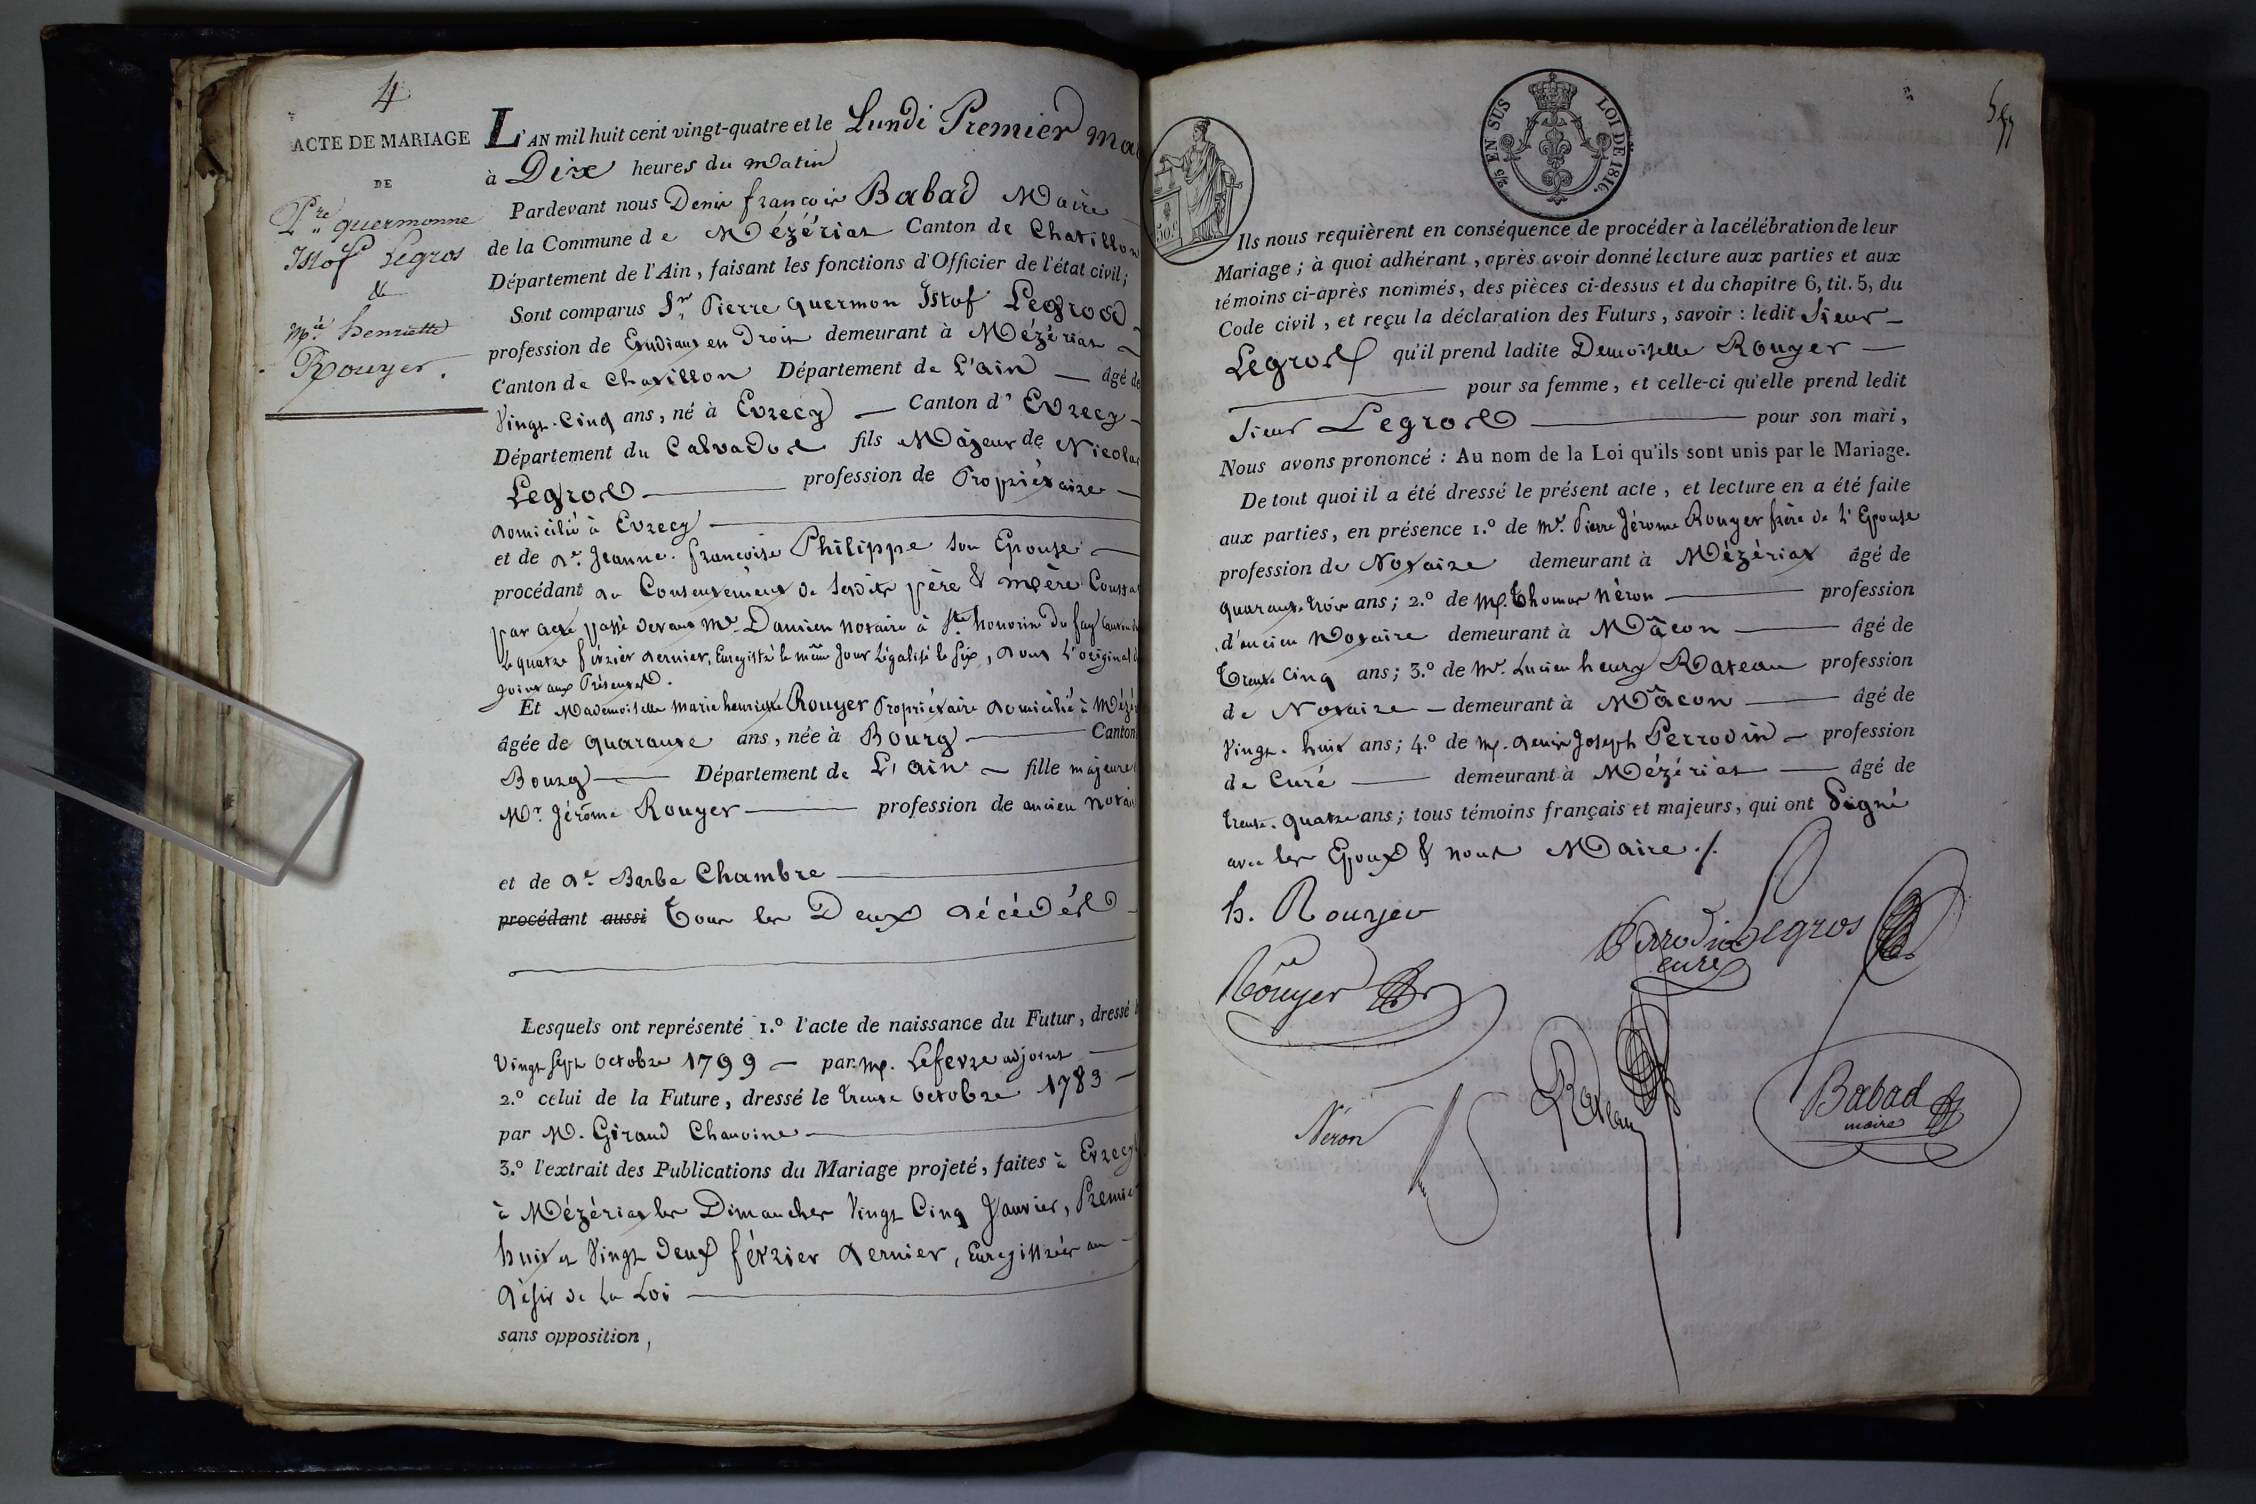 4
ACTE DE MARIAGE
DE
Pre quermonne
Istof Legros
&
Mie henriette
Rouyer.
L'AN mil huit cent vingt-quatre et le Lundi Premier
à Dix heures du matin
Pardevant nous Denis françois Babad Maire
de la Commune de Mézériat Canton de Chatillon
Département de l'Ain, faisant les fonctions d'Officier de l'état civil;
Sont comparus Sr Pierre quermon Istof Legros
profession de Etudiant en Droit demeurant à Mézériat
Canton de Chatillon Département de L'ain âgé de
Vingt-Cinq ans, né à Evrecy Canton d'Evrecy
Département du Calvados fils Majeur de Nicolas
Legros profession de Propriétaire
domicilié à Evrecy
et de de Jeanne françoise Philippe son Epouse
procédant du Consentement de sesdits père & mère
par acte passé devant Me Damien notaire à Ste honorine du fay
le quatre février dernier, Enregistré le même Jour Légalisé le Six, dont L'original
joint aux Présentes.
Et Mademoiselle Marie henriette Rouyer Propriétaire domicilié à
âgée de quarante ans, née à Bourg Canton
Bourg Département de L'ain fille majeure
Mr. Jérôme Rouyer profession de ancien
et de de Barbe Chambre
procédant aussi Tous les Deux décédés
Lesquels ont représenté 1.º l'acte de naissance du Futur, dressé
Vingt Sept Octobre 1799 par M. Lefevre adjoint
2.º celui de la Future, dressé le trente Octobre 1783
par M. Giraud Chanoine
3.º l'extrait des Publications du Mariage projeté, faites à Evrecy
à Mézériat les Dimanches Vingt Cinq Janvier, Premier
huit et Vingt deux février dernier, Enregistrés au
désir de la Loi
sans opposition,
2/5 EN SUS
LOI DE 1816.
50c
Ils nous requièrent en conséquence de procéder à la célébration de leur
Mariage; à quoi adhérant, après avoir donné lecture aux parties et aux
témoins ci-après nommés, des pièces ci-dessus et du chapitre 6, tit. 5, du
Code civil, et reçu la déclaration des Futurs, savoir: ledit Sieur
Legros qu'il prend ladite Demoiselle Rouyer
pour sa femme, et celle-ci qu'elle prend ledit
Sieur Legros pour son mari,
Nous avons prononcé: Au nom de la Loi qu'ils sont unis par le Mariage.
De tout quoi il a été dressé le présent acte, et lecture en a été faite
aux parties, en présence 1.º de Mr. Pierre Jérome Rouyer frère de L'Epouse
profession de Notaire demeurant à Mézériat âgé de
quarante-trois ans; 2.º de M. Thomas Néron profession
d'ancien Notaire demeurant à Mâcon âgé de
trente cinq ans; 3.º de Mr. Lucien henry Rateau profession
de Notaire demeurant à Mâcon âgé de
Vingt-huit ans; 4.º de M. denis Joseph Perrodin profession
de Curé demeurant à Mézériat âgé de
trente-quatre ans; tous témoins français et majeurs, qui ont Signé
avec les Epoux & nous Maire ./.
h. Rouyer
Perrodin Legros
curé
Rouyer
Rateau
Babad
maire
Néron